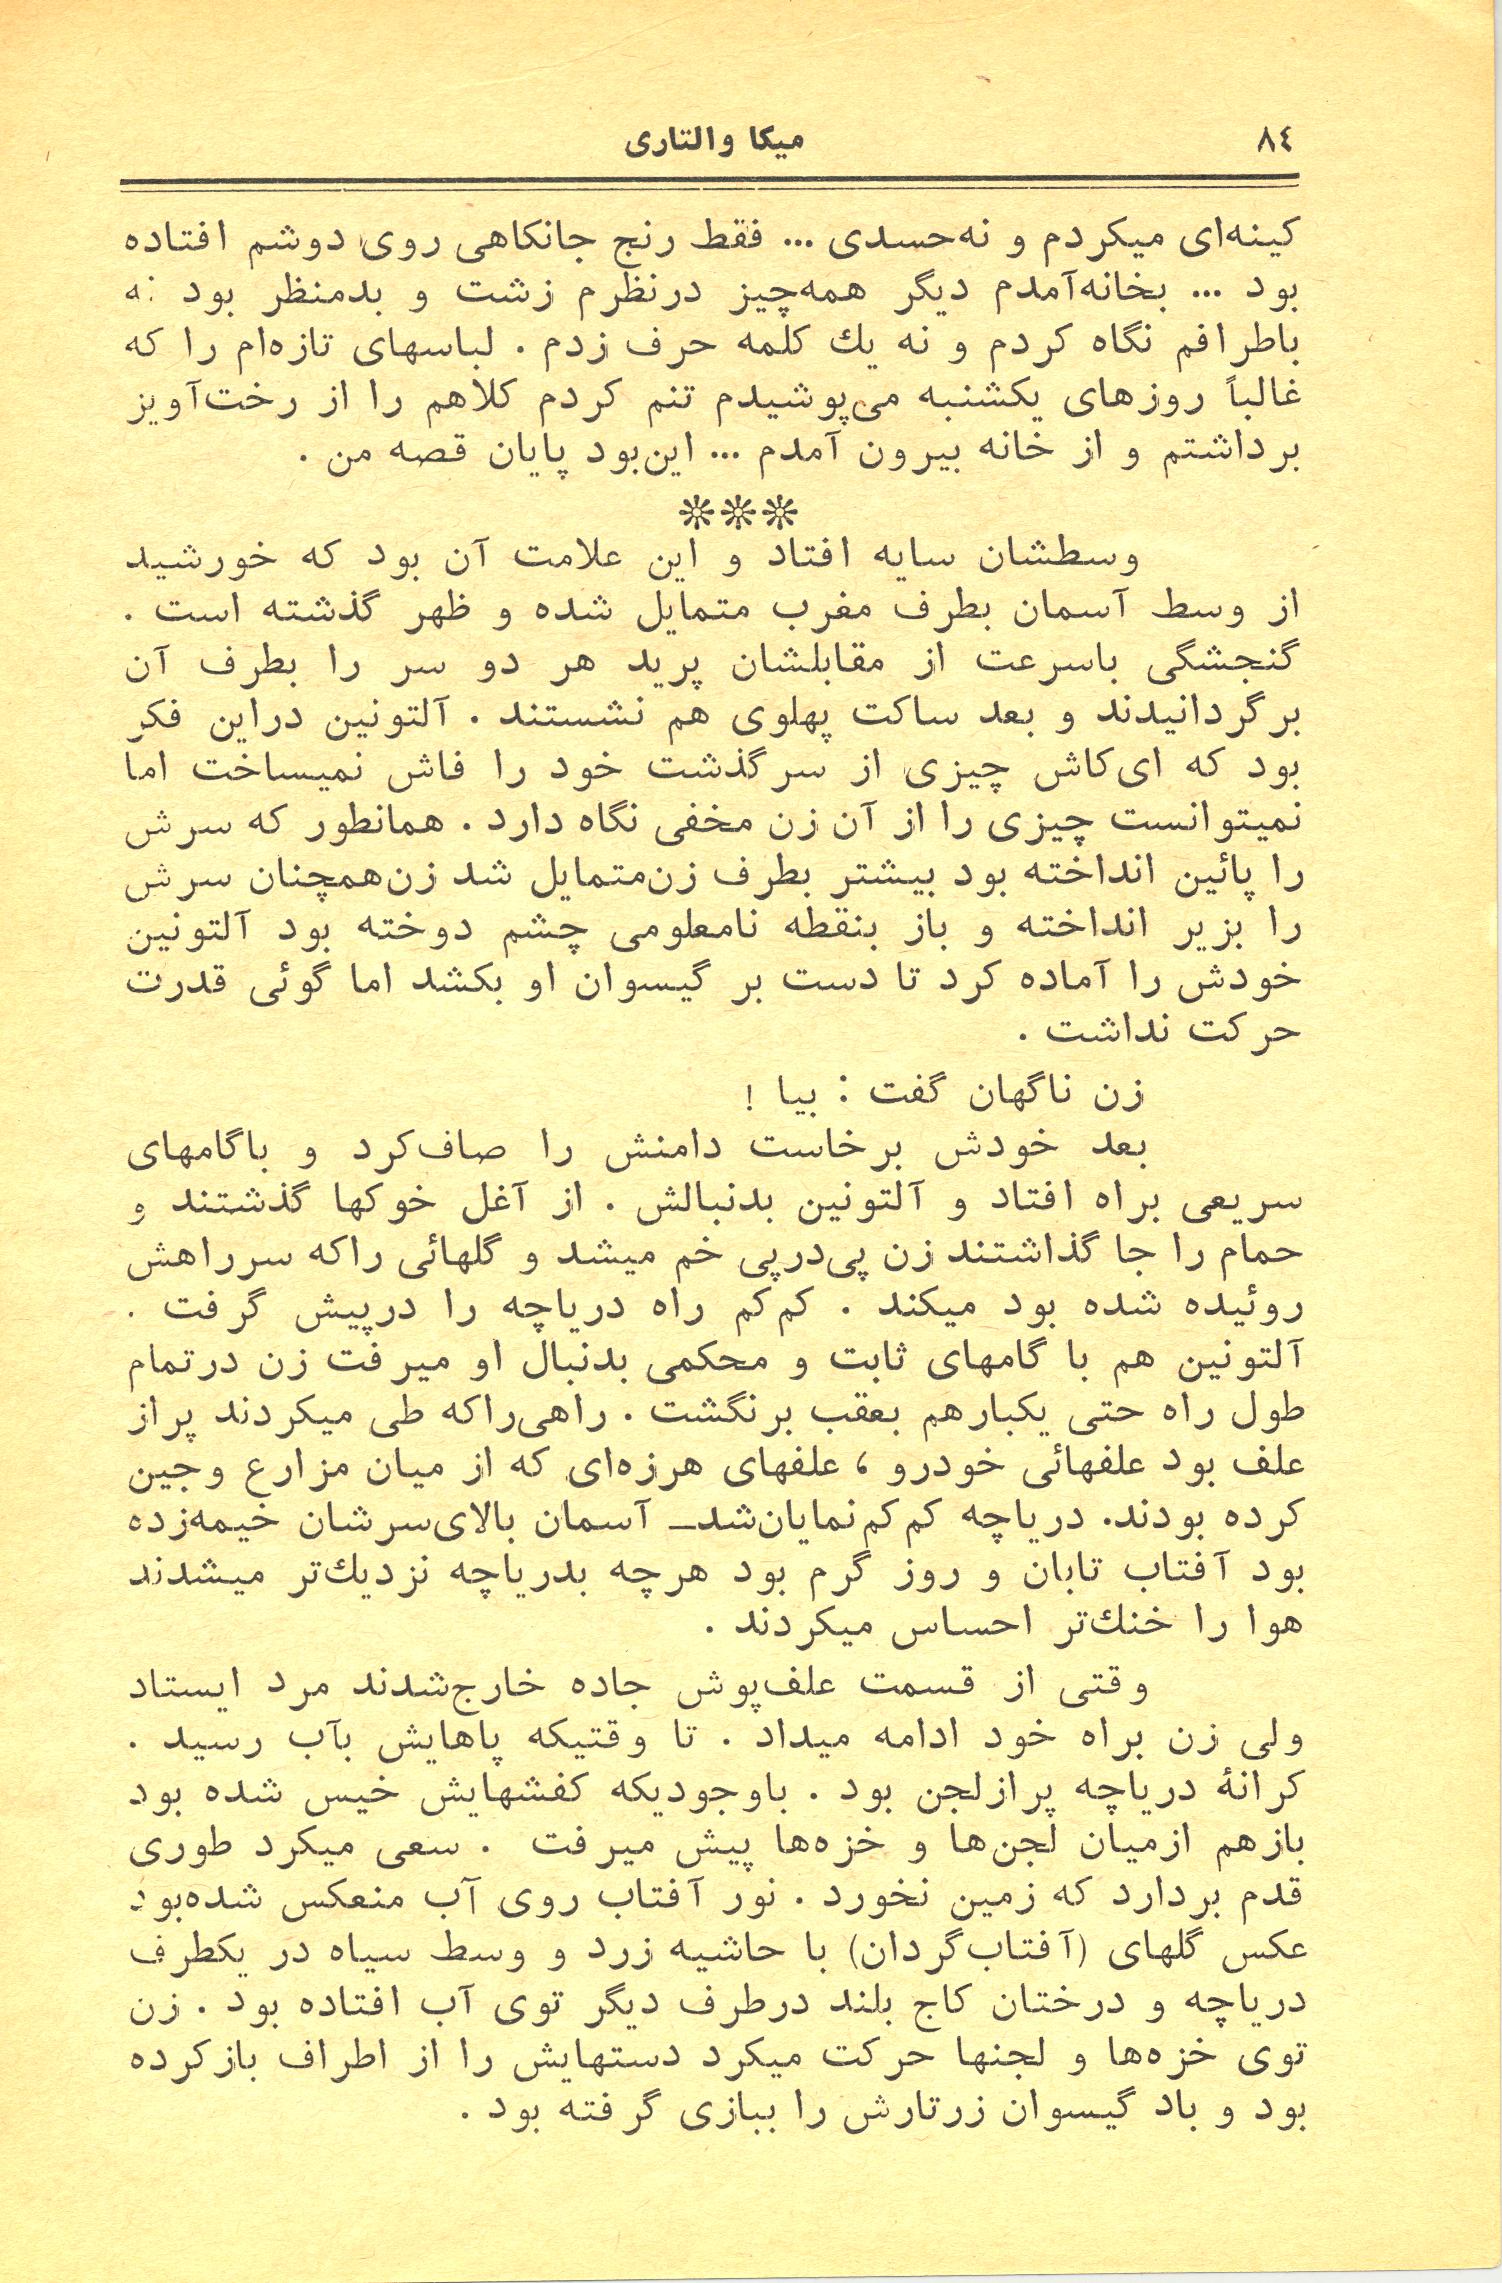 ۸٤
میکا والتاری
کینه‌ای میکردم و نه‌حسدی ... فقط رنج جانکاهی روی دوشم افتاده
بود ... بخانه‌آمدم دیگر همه‌چیز درنظرم زشت و بدمنظر بود نه
باطرافم نگاه کردم و نه یك کلمه حرف زدم . لباسهای تازه‌ام را که
غالباً روزهای یکشنبه می‌پوشیدم تنم کردم کلاهم را از رخت‌آویز
برداشتم و از خانه بیرون آمدم ... این‌بود پایان قصه من .
❊❊❊
وسطشان سایه افتاد و این علامت آن بود که خورشید
از وسط آسمان بطرف مغرب متمایل شده و ظهر گذشته است .
گنجشگی باسرعت از مقابلشان پرید هر دو سر را بطرف آن
برگردانیدند و بعد ساکت پهلوی هم نشستند . آلتونین دراین فکر
بود که ای‌کاش چیزی از سرگذشت خود را فاش نمیساخت اما
نمیتوانست چیزی را از آن زن مخفی نگاه دارد . همانطور که سرش
را پائین انداخته بود بیشتر بطرف زن‌متمایل شد زن‌همچنان سرش
را بزیر انداخته و باز بنقطه نامعلومی چشم دوخته بود آلتونین
خودش را آماده کرد تا دست بر گیسوان او بکشد اما گوئی قدرت
حرکت نداشت .
زن ناگهان گفت : بیا !
بعد خودش برخاست دامنش را صاف‌کرد و باگامهای
سریعی براه افتاد و آلتونین بدنبالش . از آغل خوکها گذشتند و
حمام را جا گذاشتند زن پی‌درپی خم میشد و گلهائی راکه سرراهش
روئیده شده بود میکند . کم‌کم راه دریاچه را درپیش گرفت .
آلتونین هم با گامهای ثابت و محکمی بدنبال او میرفت زن درتمام
طول راه حتی یکبارهم بعقب برنگشت . راهی‌راکه طی میکردند پراز
علف بود علفهائی خودرو ، علفهای هرزه‌ای که از میان مزارع وجین
کرده بودند. دریاچه کم‌کم‌نمایان‌شد_ آسمان بالای‌سرشان خیمه‌زده
بود آفتاب تابان و روز گرم بود هرچه بدریاچه نزدیك‌تر میشدند
هوا را خنك‌تر احساس میکردند .
وقتی از قسمت علف‌پوش جاده خارج‌شدند مرد ایستاد
ولی زن براه خود ادامه میداد . تا وقتیکه پاهایش بآب رسید .
کرانهٔ دریاچه پرازلجن بود . باوجودیکه کفشهایش خیس شده بود
بازهم ازمیان لجن‌ها و خزه‌ها پیش میرفت . سعی میکرد طوری
قدم بردارد که زمین نخورد . نور آفتاب روی آب منعکس شده‌بود
عکس گلهای (آفتاب‌گردان) با حاشیه زرد و وسط سیاه در یکطرف
دریاچه و درختان کاج بلند درطرف دیگر توی آب افتاده بود . زن
توی خزه‌ها و لجنها حرکت میکرد دستهایش را از اطراف بازکرده
بود و باد گیسوان زرتارش را ببازی گرفته بود .